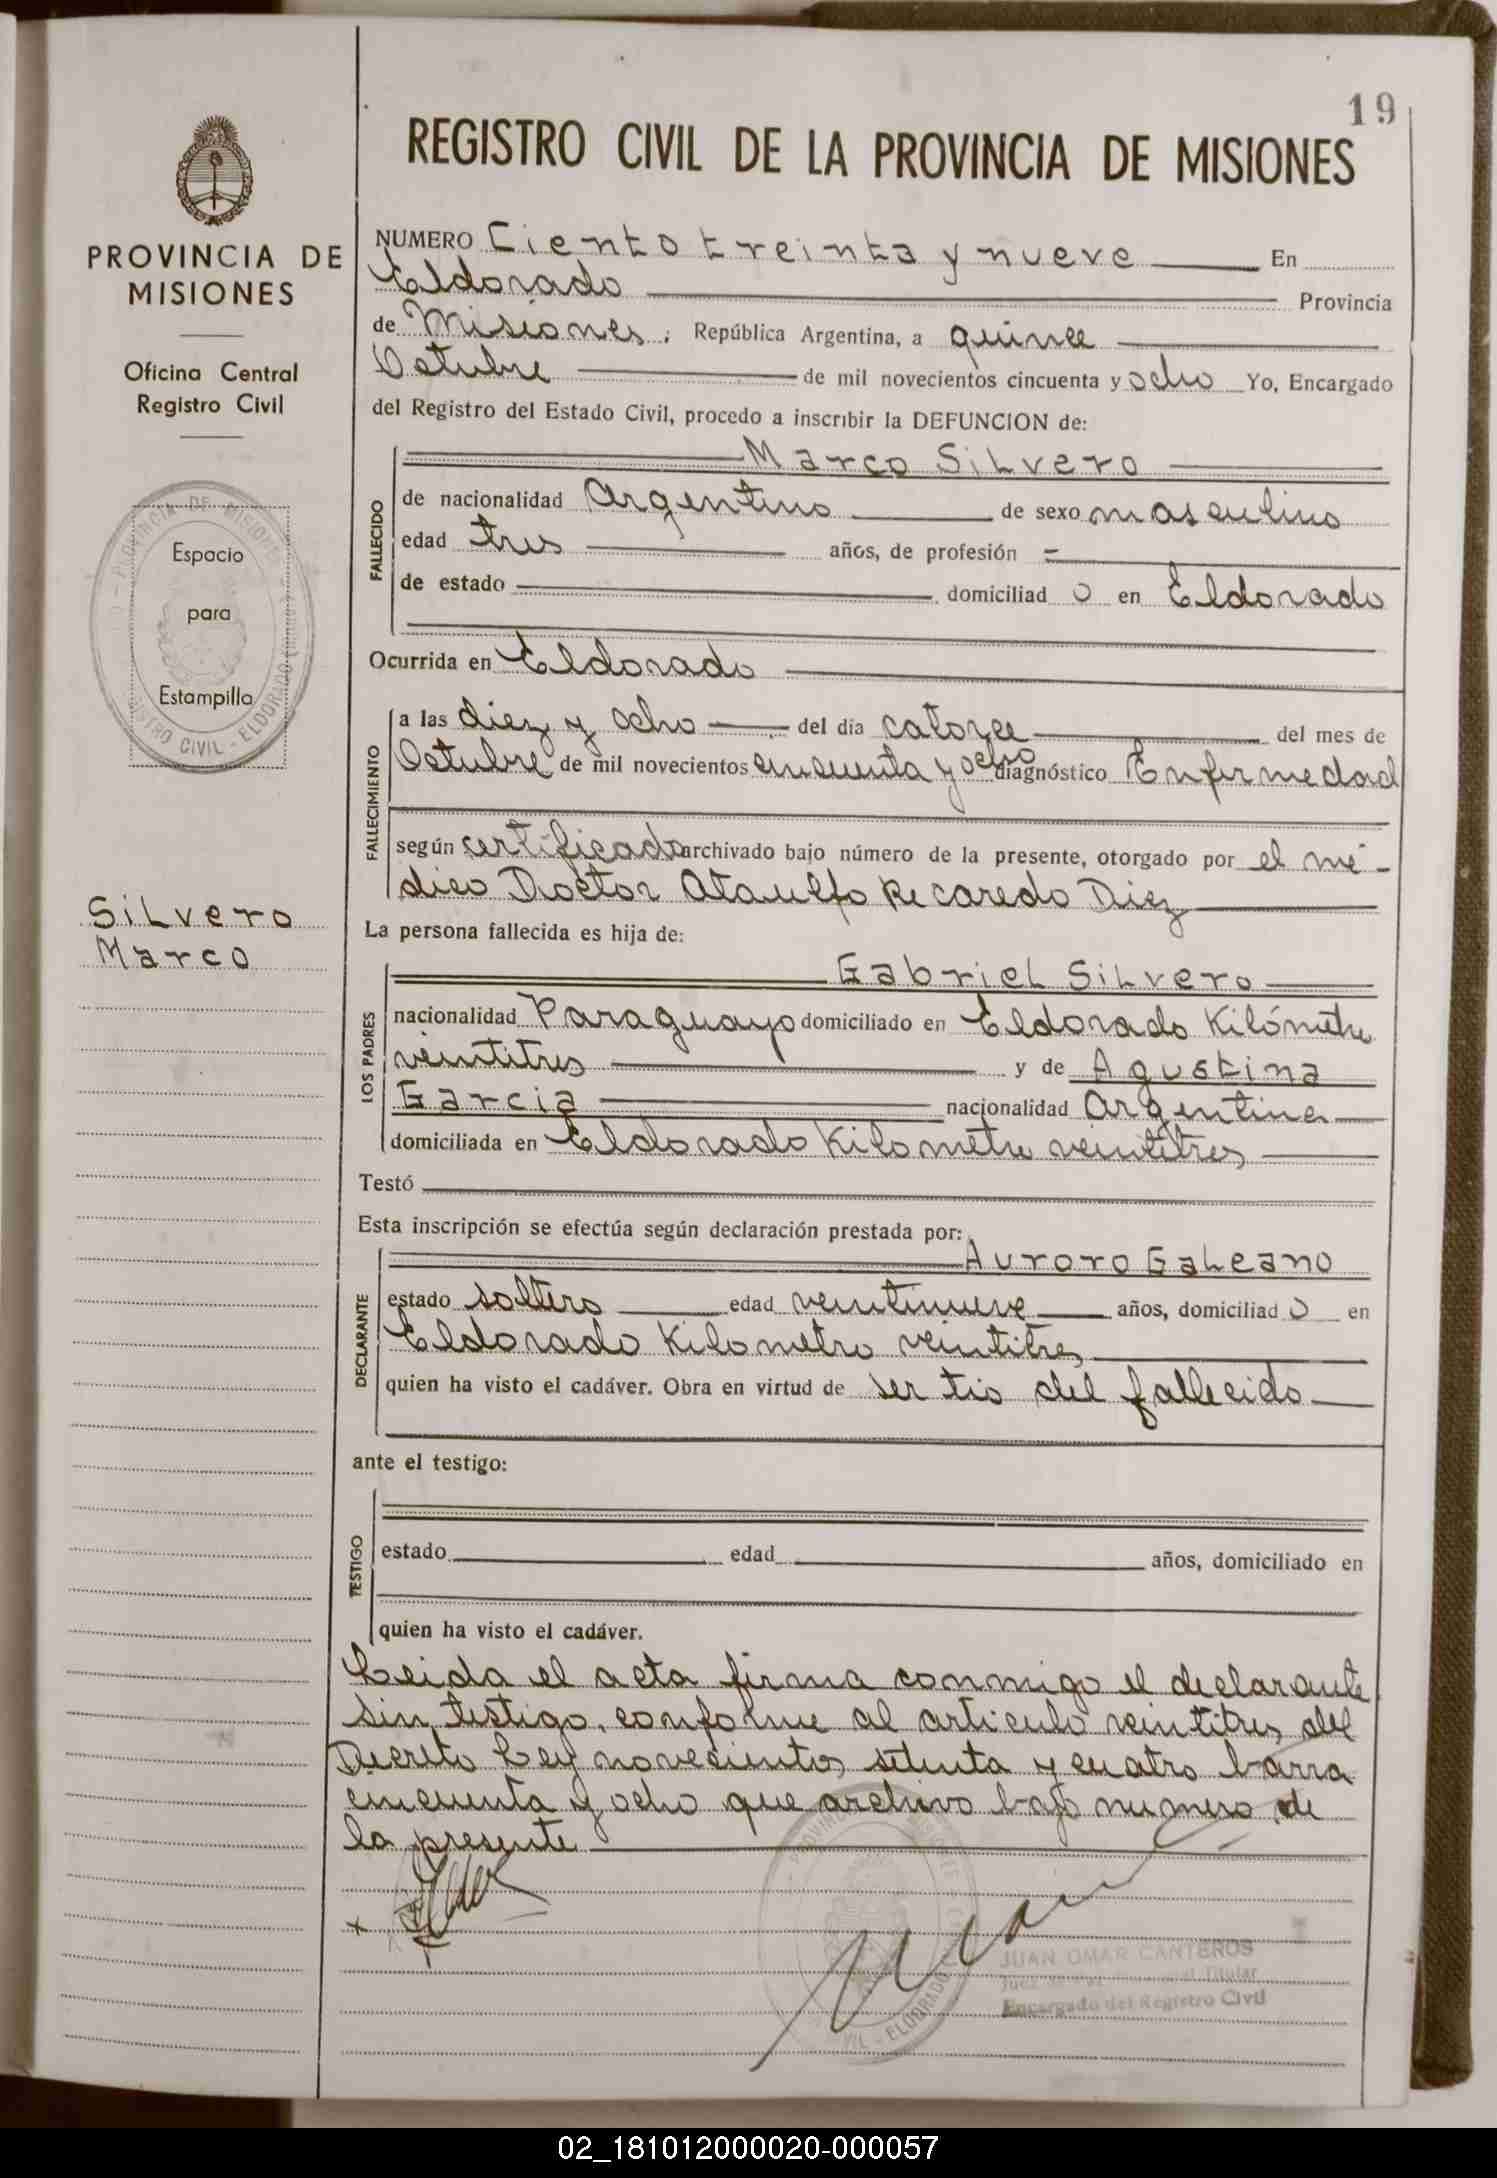 19
REGISTRO CIVIL DE LA PROVINCIA DE MISIONES
PROVINCIA DE
MISIONES
Oficina Central
Registro Civil
Espacio
para
Estampilla
Silvero
Marco
NUMERO Ciento treinta y nueve En
Eldorado Provincia
de Misiones. República Argentina, a quince
Octubre de mil novecientos cincuenta y ocho Yo, Encargado
del Registro del Estado Civil, procedo a inscribir la DEFUNCION de:
Marco Silvero
FALLECIDO
de nacionalidad Argentino de sexo masculino
edad tres años, de profesión -
de estado domiciliad o en Eldorado
Ocurrida en Eldorado
FALLECIMIENTO
a las diez y ocho del día catorce del mes de
Octubre de mil novecientos cincuenta y ocho diagnóstico Enfermedad
según certificado archivado bajo número de la presente, otorgado por el mé-
dico Doctor Ataulfo Recaredo Diez
La persona fallecida es hija de:
LOS PADRES
Gabriel Silvero
nacionalidad Paraguayo domiciliado en Eldorado Kilómetro
veintitres y de Agustina
Garcia nacionalidad Argentina
domiciliada en Eldorado Kilometro veintitres
Testó
Esta inscripción se efectúa según declaración prestada por:
DECLARANTE
Auroro Galeano
estado soltero edad veintinueve años, domiciliad o en
Eldorado Kilometro veintitres
quien ha visto el cadáver. Obra en virtud de ser tio del fallecido
ante el testigo:
TESTIGO
estado edad años, domiciliado en
quien ha visto el cadáver.
Leida el acta firma conmigo el declarante
sin testigo, conforme al articulo veintitres del
Decreto Ley novecientos setenta y cuatro barra
cincuenta y ocho que archivo bajo numero de
la presente
JUAN OMAR CANTEROS
Titular
Encargado del Registro Civil
02_181012000020-000057